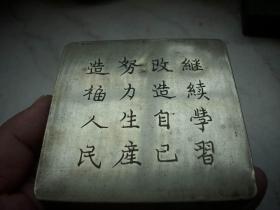 继续學習
改造自己
努力生產
造福人民